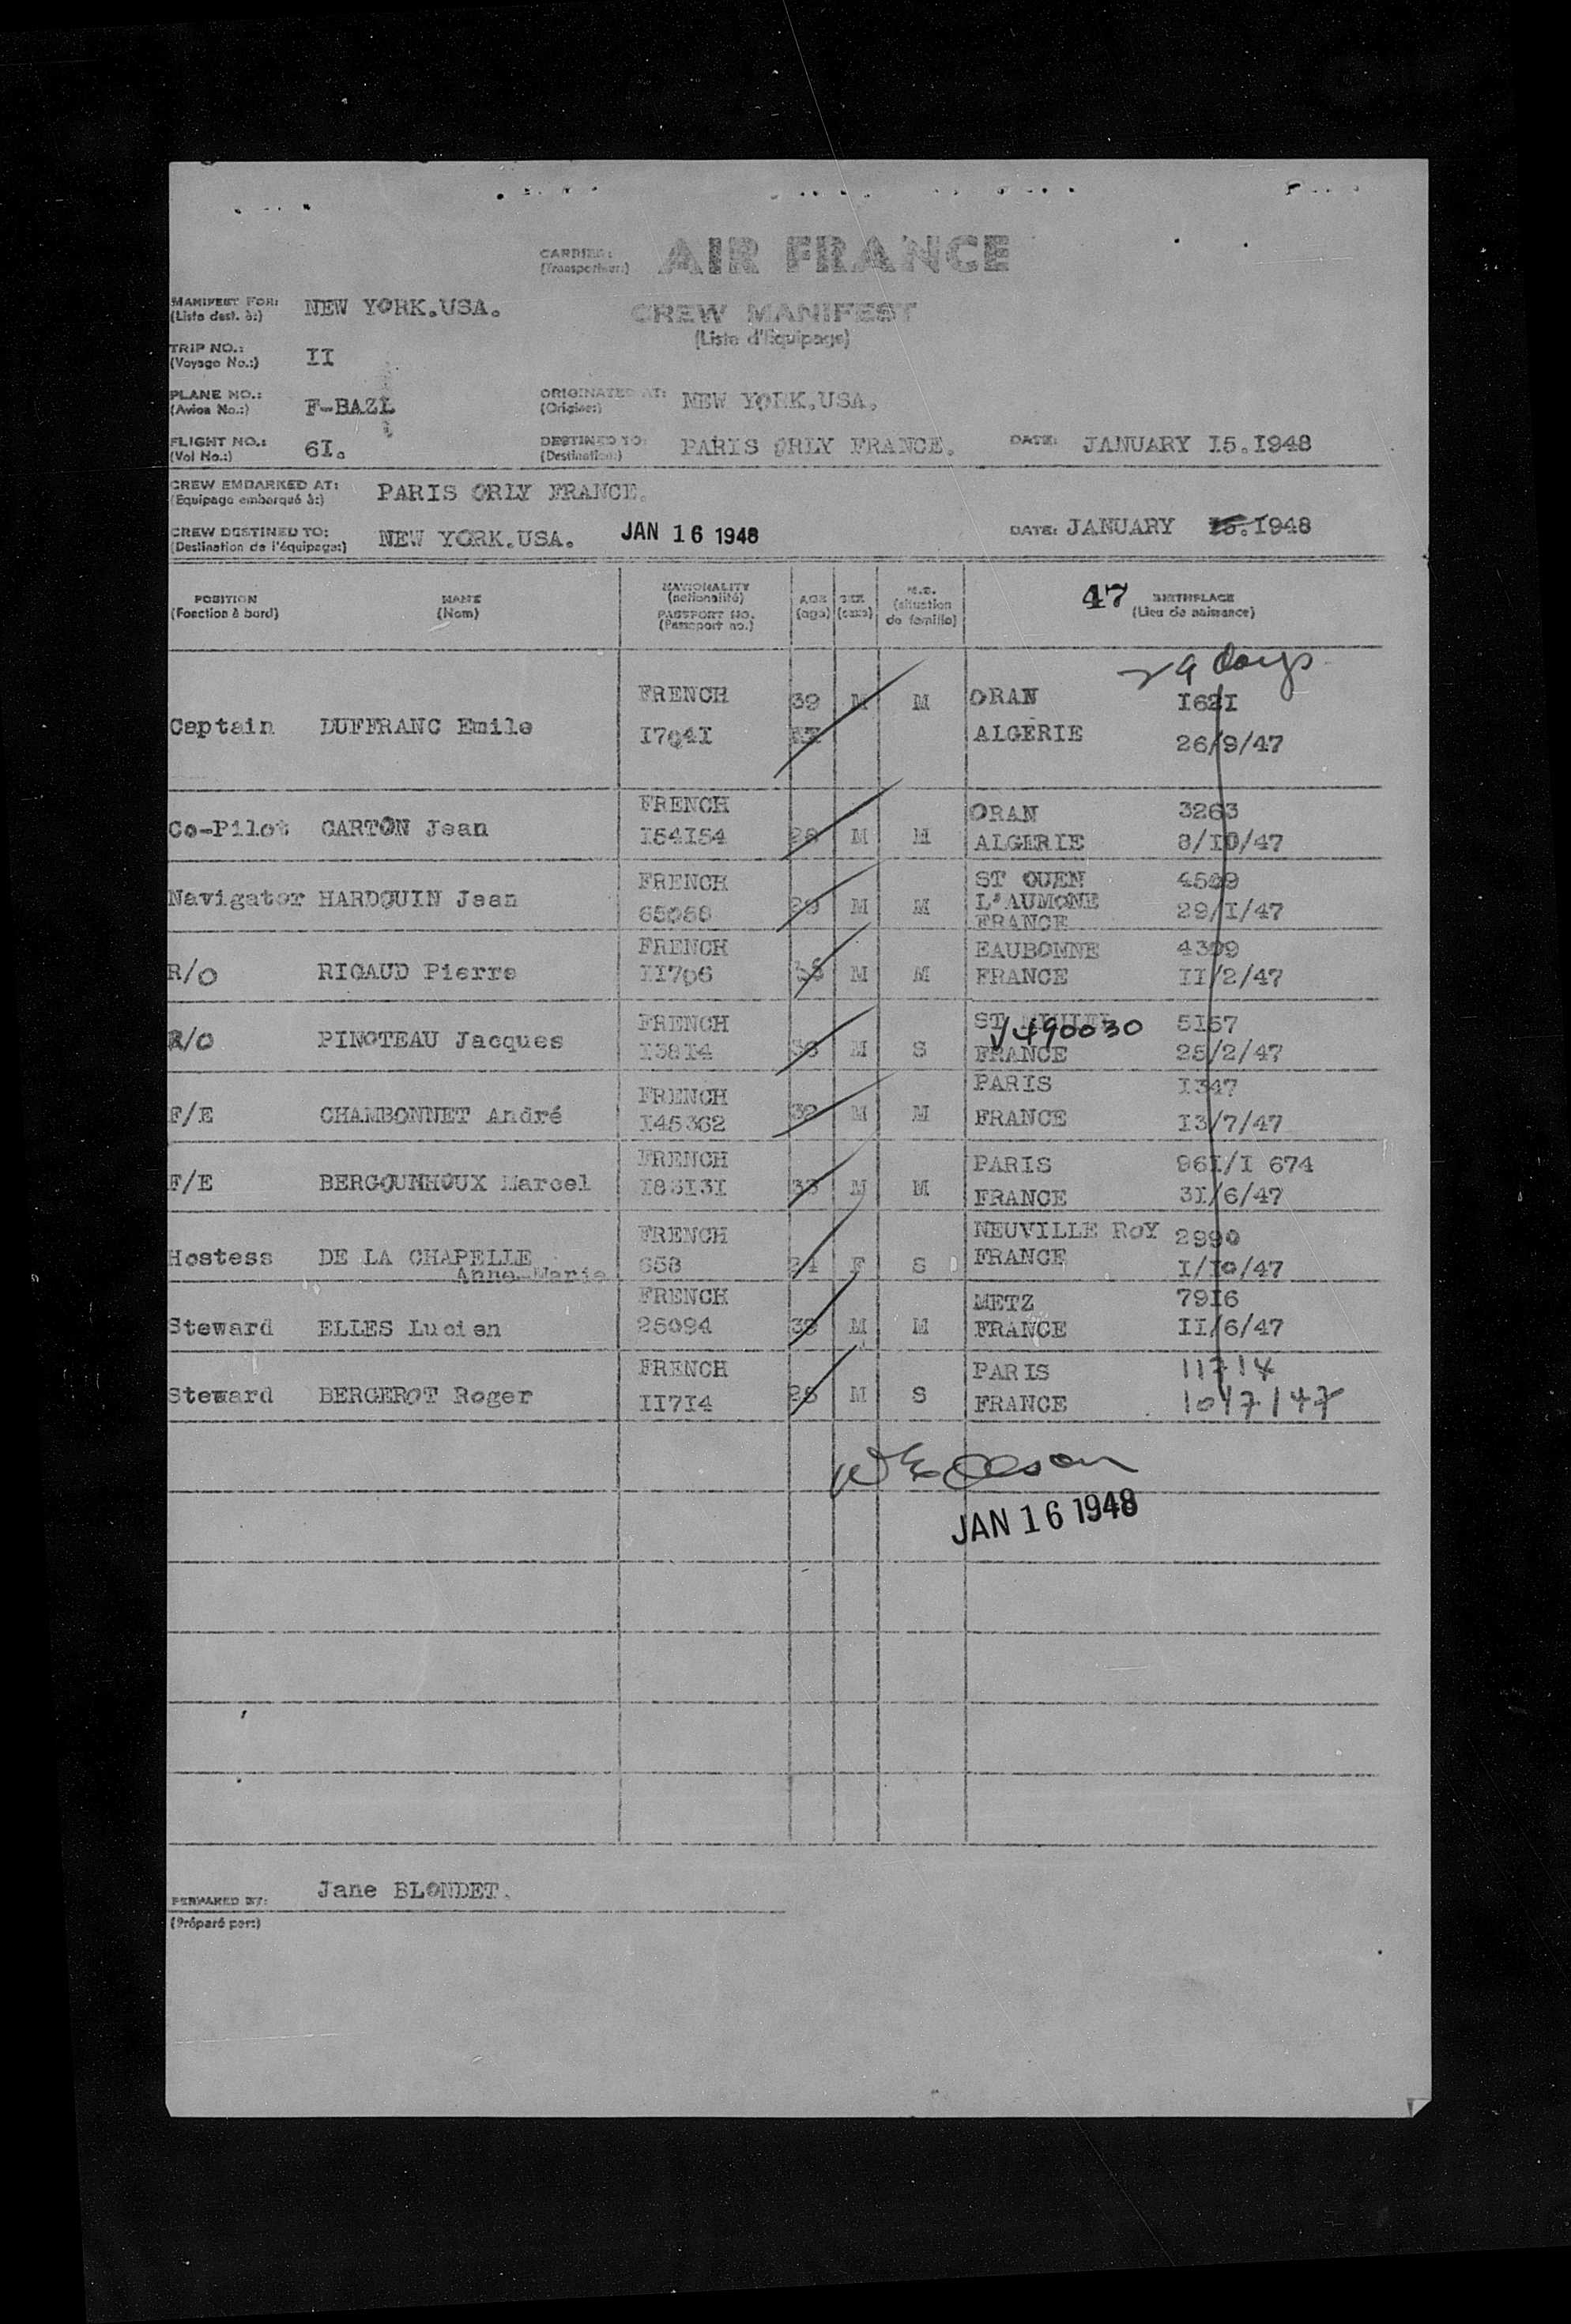 CARRIER: AIR FRANCE
(Transporteur:)
MANIFEST FOR: NEW YORK.USA.
(Liste dest. à:)
CREW MANIFEST
(Liste d'Equipage)
TRIP NO.: II
(Voyage No.:)
PLANE NO.: F-BAZL
(Avion No.:)
ORIGINATED AT: NEW YORK.USA.
(Origine:)
FLIGHT NO.: 6I.
(Vol No.:)
DESTINED TO: PARIS ORLY FRANCE.
(Destination:)
DATE: JANUARY I5.I948
CREW EMBARKED AT: PARIS ORLY FRANCE.
(Equipage embarqué à:)
CREW DESTINED TO: NEW YORK.USA. JAN 16 1948
(Destination de l'équipage:)
DATE: JANUARY I5.I948
POSITION
(Fonction à bord)
NAME
(Nom)
NATIONALITY
(nationalité)
PASSPORT NO.
(Passeport no.)
AGE
(age)
SEX
(sexe)
M.S.
(situation
de famille)
47 BIRTHPLACE
(Lieu de naissance)
29 days
Captain DUFFRANC Emile FRENCH I704I 39 M M ORAN ALGERIE I62I 26/9/47
Co-Pilot CARTON Jean FRENCH I54I54 28 M M ORAN ALGERIE 3263 8/I0/47
Navigator HARDOUIN Jean FRENCH 65068 29 M M ST OUEN L'AUMONE FRANCE 4509 29/I/47
R/O RIGAUD Pierre FRENCH II706 M M EAUBONNE FRANCE 4309 II/2/47
R/O PINOTEAU Jacques FRENCH I38I4 M S ST FRANCE V490030 5I57 25/2/47
F/E CHAMBONNET André FRENCH I45362 39 M M PARIS FRANCE I347 I3/7/47
F/E BERGOUNHOUX Marcel FRENCH I83I3I 33 M M PARIS FRANCE 96I/I 674 3I/6/47
Hostess DE LA CHAPELLE Anne-Marie FRENCH 658 24 F S NEUVILLE ROY FRANCE 2990 I/I0/47
Steward ELLES Lucien FRENCH 25094 38 M M METZ FRANCE 79I6 II/6/47
Steward BERGEROT Roger FRENCH II7I4 28 M S PARIS FRANCE 11714 10/7/47
JAN 16 1948
PREPARED BY: Jane BLONDET.
(Préparé par:)